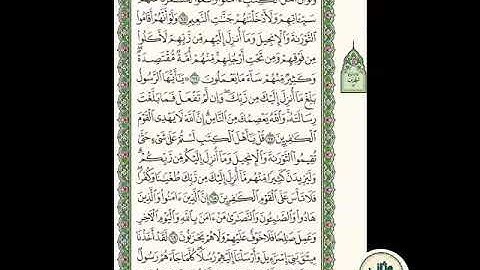 وَلَوْ أَنَّ أَهْلَ الْكِتَٰبِ ءَامَنُوا۟ وَاتَّقَوْا۟ لَكَفَّرْنَا عَنْهُمْ
سَيِّـَٔاتِهِمْ وَلَأَدْخَلْنَٰهُمْ جَنَّٰتِ النَّعِيمِ ٦٥ وَلَوْ أَنَّهُمْ أَقَامُوا۟
التَّوْرَىٰةَ وَالْإِنجِيلَ وَمَآ أُنزِلَ إِلَيْهِم مِّن رَّبِّهِمْ لَأَكَلُوا۟
مِن فَوْقِهِمْ وَمِن تَحْتِ أَرْجُلِهِم مِّنْهُمْ أُمَّةٌ مُّقْتَصِدَةٌ
وَكَثِيرٌ مِّنْهُمْ سَآءَ مَا يَعْمَلُونَ ٦٦ يَٰٓأَيُّهَا الرَّسُولُ
بَلِّغْ مَآ أُنزِلَ إِلَيْكَ مِن رَّبِّكَ وَإِن لَّمْ تَفْعَلْ فَمَا بَلَّغْتَ
رِسَالَتَهُۥ وَاللَّهُ يَعْصِمُكَ مِنَ النَّاسِ إِنَّ اللَّهَ لَا يَهْدِى الْقَوْمَ
الْكَٰفِرِينَ ٦٧ قُلْ يَٰٓأَهْلَ الْكِتَٰبِ لَسْتُمْ عَلَىٰ شَىْءٍ حَتَّىٰ
تُقِيمُوا۟ التَّوْرَىٰةَ وَالْإِنجِيلَ وَمَآ أُنزِلَ إِلَيْكُم مِّن رَّبِّكُمْ
وَلَيَزِيدَنَّ كَثِيرًا مِّنْهُم مَّآ أُنزِلَ إِلَيْكَ مِن رَّبِّكَ طُغْيَٰنًا وَكُفْرًا
فَلَا تَأْسَ عَلَى الْقَوْمِ الْكَٰفِرِينَ ٦٨ إِنَّ الَّذِينَ ءَامَنُوا۟ وَالَّذِينَ
هَادُوا۟ وَالصَّٰبِـُٔونَ وَالنَّصَٰرَىٰ مَنْ ءَامَنَ بِاللَّهِ وَالْيَوْمِ الْءَاخِرِ
وَعَمِلَ صَٰلِحًا فَلَا خَوْفٌ عَلَيْهِمْ وَلَا هُمْ يَحْزَنُونَ ٦٩ لَقَدْ أَخَذْنَا
مِيثَٰقَ بَنِىٓ إِسْرَٰٓءِيلَ وَأَرْسَلْنَآ إِلَيْهِمْ رُسُلًا كُلَّمَا جَآءَهُمْ رَسُولٌۢ